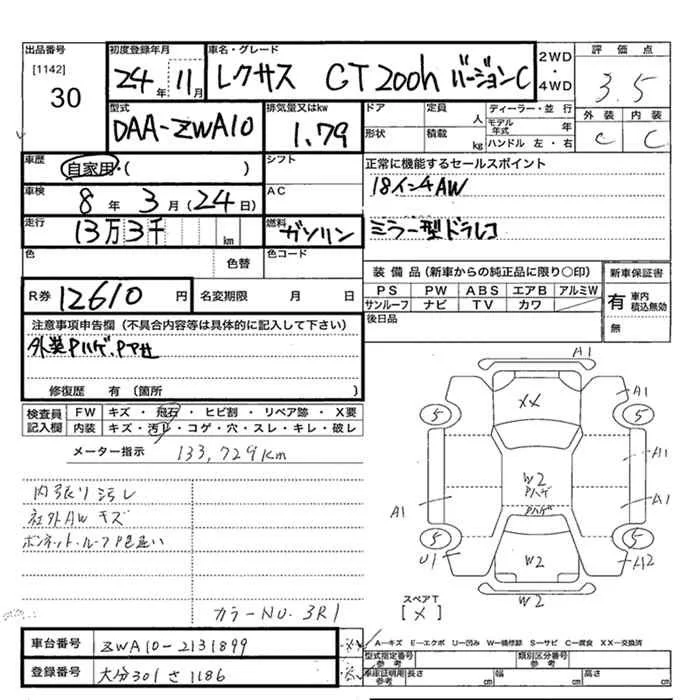 出品番号
[1142]
30
初度登録年月
24年 11月
車名・グレード
レクサス CT200h バージョンC
2WD
・
4WD
評価点
3.5
型式
DAA-ZWA10
排気量又はkw
1.79
ドア 定員 人
形状 積載 kg
ディーラー・並行
モデル年式 年
ハンドル 左・右
外装 内装
C C
車歴
自家用・( )
シフト
正常に機能するセールスポイント
18インチAW
ミラー型ドラレコ
車検
8年 3月(24日)
AC
走行
13万3千 km
燃料
ガソリン
色 色替
色コード
装備品(新車からの純正品に限り○印)
PS PW ABS エアB アルミW
サンルーフ ナビ TV カワ
新車保証書
有 車内積込無効
無
R券 12610円
名変期限 月 日
後日品
注意事項申告欄(不具合内容等は具体的に記入して下さい)
外装Pハゲ、Pアセ
修復歴 有(箇所 )
検査員記入欄
FW キズ・飛石・ヒビ割・リペア跡・X要
内装 キズ・汚レ・コゲ・穴・スレ・キレ・破レ
メーター指示 133,729km
内張り汚レ
社外AWキズ
ボンネット・ルーフP色違い
カラーNO. 3R1
A1
XX
A1
5
5
A1
W2
Pハゲ
Pハゲ
A1
A1
5
5
U1
W2
A12
W2
スペアT
[×]
車台番号 ZWA10-2131899
登録番号 大分301さ1186
A−キズ E−エクボ U−凹み W−補修跡 S−サビ C−腐食 XX−交換済
型式指定番号 参考
類別区分番号 参考
車庫証明用 参考
長さ cm 幅 cm 高さ cm